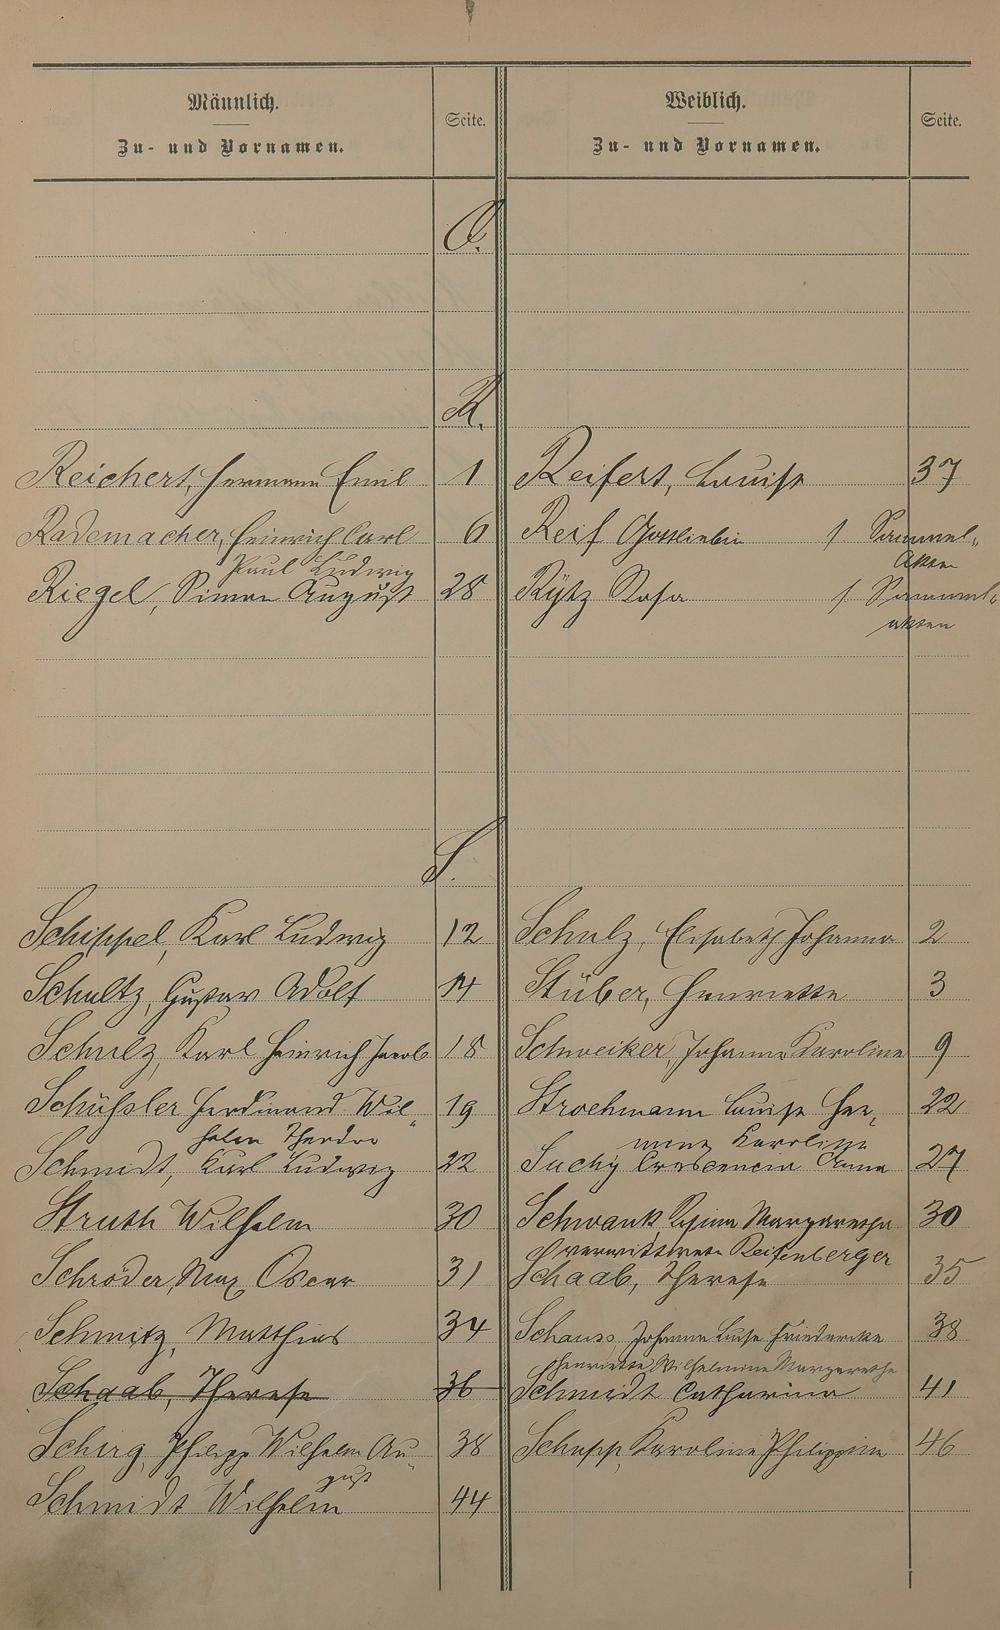 Männlich.
Zu- und Vornamen.
Seite.
Weiblich.
Zu- und Vornamen.
Seite.
Q.
R.
Reichert, Hermann Emil 1 Reifert, Louise 37
Rademacher, Heinrich Carl 6 Reif Gottliebin 1 Sammel-
Paul Ludwig Akten
Riegel, Simon August 28 Rÿtz Rosa 1 Sammel-
akten
S.
Schippel, Karl Ludwig 12 Schulz, Elisabeth Johanna 2
Schultz, Gustav Adolf 14 Stüber, Henriette 3
Schulz, Karl Heinrich Jacob 18 Schweiker, Johanna Karoline 9
Schüssler Ferdinand Wil- 19 Stroehmann Louise Her- 22
helm Theodor mine Karoline
Schmidt, Karl Ludwig 22 Suchÿ Crescencia Anna 27
Struth Wilhelm 30 Schwank Regina Margaretha 30
verwittwete Reifenberger
Schröder, Max Oscar 31 Schaab, Therese 35
Schmitz, Matthias 34 Schauss, Johanna Luise Friedericke 38
Henriette Wilhelmine Margarethe
Schaab, Therese 36 Schmidt Catharina 41
Schirg, Philipp Wilhelm Au- 38 Schupp, Karoline Philippine 46
gust
Schmidt Wilhelm 44